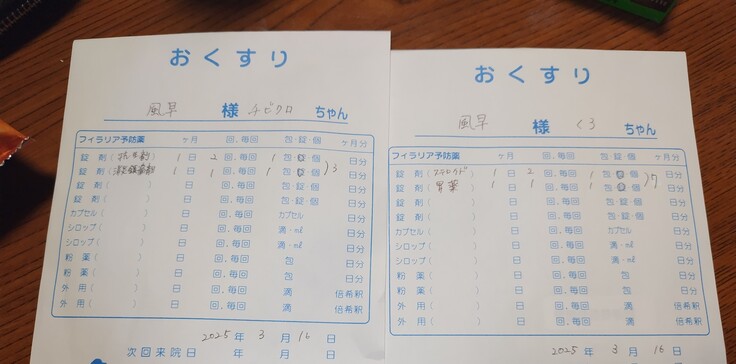 おくすり
風早 様 チビクロ ちゃん
フィラリア予防薬 ヶ月 回,毎回 包・錠・個 ヶ月分
錠 剤( ) 1日 2回,毎回 1 包・錠・個 日分
錠 剤( ) 1日 1回,毎回 1 包・錠・個 )3 日分
錠 剤( ) 日 回,毎回 包・錠・個 日分
錠 剤( ) 日 回,毎回 包・錠・個 日分
カプセル( ) 日 回,毎回 カプセル 日分
シロップ( ) 日 回,毎回 滴・ml 日分
シロップ( ) 日 回,毎回 滴・ml 日分
粉 薬( ) 日 回,毎回 包 日分
粉 薬( ) 日 回,毎回 包 日分
外 用( ) 日 回,毎回 滴 倍希釈
外 用( ) 日 回,毎回 滴 倍希釈
2025年 3月 16日
次回来院日 年 月 日
おくすり
風早 様 くろ ちゃん
フィラリア予防薬 ヶ月 回,毎回 包・錠・個 ヶ月分
錠 剤(ステロイド) 1日 2回,毎回 1 包・錠・個 日分
錠 剤(胃薬) 1日 1回,毎回 1 包・錠・個 )7 日分
錠 剤( ) 日 回,毎回 包・錠・個 日分
錠 剤( ) 日 回,毎回 包・錠・個 日分
カプセル( ) 日 回,毎回 カプセル 日分
シロップ( ) 日 回,毎回 滴・ml 日分
シロップ( ) 日 回,毎回 滴・ml 日分
粉 薬( ) 日 回,毎回 包 日分
粉 薬( ) 日 回,毎回 包 日分
外 用( ) 日 回,毎回 滴 倍希釈
外 用( ) 日 回,毎回 滴 倍希釈
2025年 3月 16日